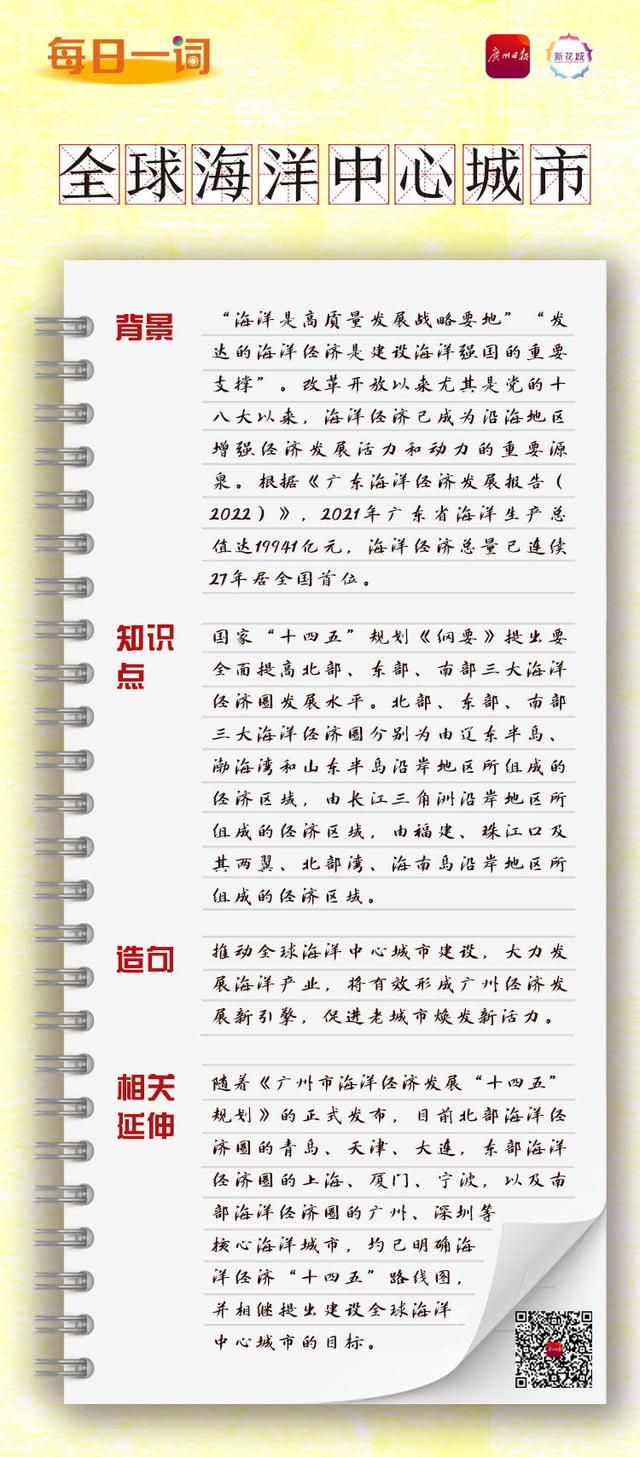 每日一词
广州日报
新花城
全球海洋中心城市
背景
“海洋是高质量发展战略要地”“发
达的海洋经济是建设海洋强国的重要
支撑”。改革开放以来尤其是党的十
八大以来，海洋经济已成为沿海地区
增强经济发展活力和动力的重要源
泉。根据《广东海洋经济发展报告（
2022）》，2021年广东省海洋生产总
值达19941亿元，海洋经济总量已连续
27年居全国首位。
知识
点
国家“十四五”规划《纲要》提出要
全面提高北部、东部、南部三大海洋
经济圈发展水平。北部、东部、南部
三大海洋经济圈分别为由辽东半岛、
渤海湾和山东半岛沿岸地区所组成的
经济区域，由长江三角洲沿岸地区所
组成的经济区域，由福建、珠江口及
其两翼、北部湾、海南岛沿岸地区所
组成的经济区域。
造句
推动全球海洋中心城市建设，大力发
展海洋产业，将有效形成广州经济发
展新引擎，促进老城市焕发新活力。
相关
延伸
随着《广州市海洋经济发展“十四五”
规划》的正式发布，目前北部海洋经
济圈的青岛、天津、大连，东部海洋
经济圈的上海、厦门、宁波，以及南
部海洋经济圈的广州、深圳等
核心海洋城市，均已明确海
洋经济“十四五”路线图，
并相继提出建设全球海洋
中心城市的目标。